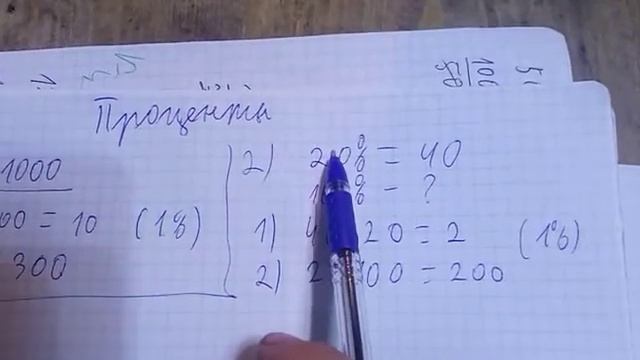 Проценты
1000
00 = 10 (1%)
300
2) 20% = 40
% - ?
1) 20 = 2 (1%)
2) 2 00 = 200